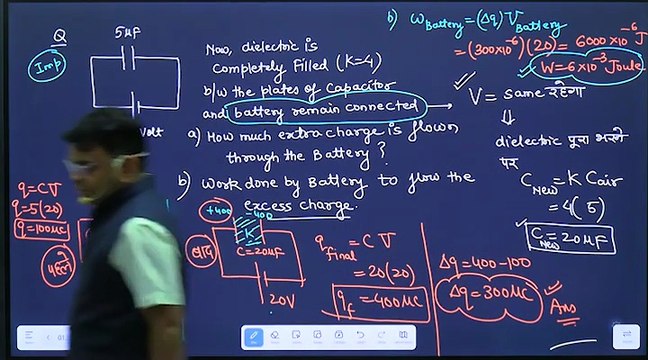 Q
Imp
5μF
volt
Now, dielectric is
completely Filled (K=4)
b/w the plates of Capacitor
and battery remain connected →
a) How much extra charge is flown
through the Battery ?
b) Work done by Battery to flow the
excess charge.
b) W_Battery = (Δq) V_Battery
= (300×10⁻⁶)(20) = 6000×10⁻⁶ J
W = 6×10⁻³ Joule
V = same रहेगा
⇓
dielectric पूरा भरने
पर
C_New = K C_air
= 4(5)
C_New = 20μF
q = CV
q = 5(20)
q = 100μC
पहले
बाद
+400 -400
K
C = 20μF
20V
q_final = CV
= 20(20)
q_f = 400μC
Δq = 400-100
Δq = 300μC
Ans